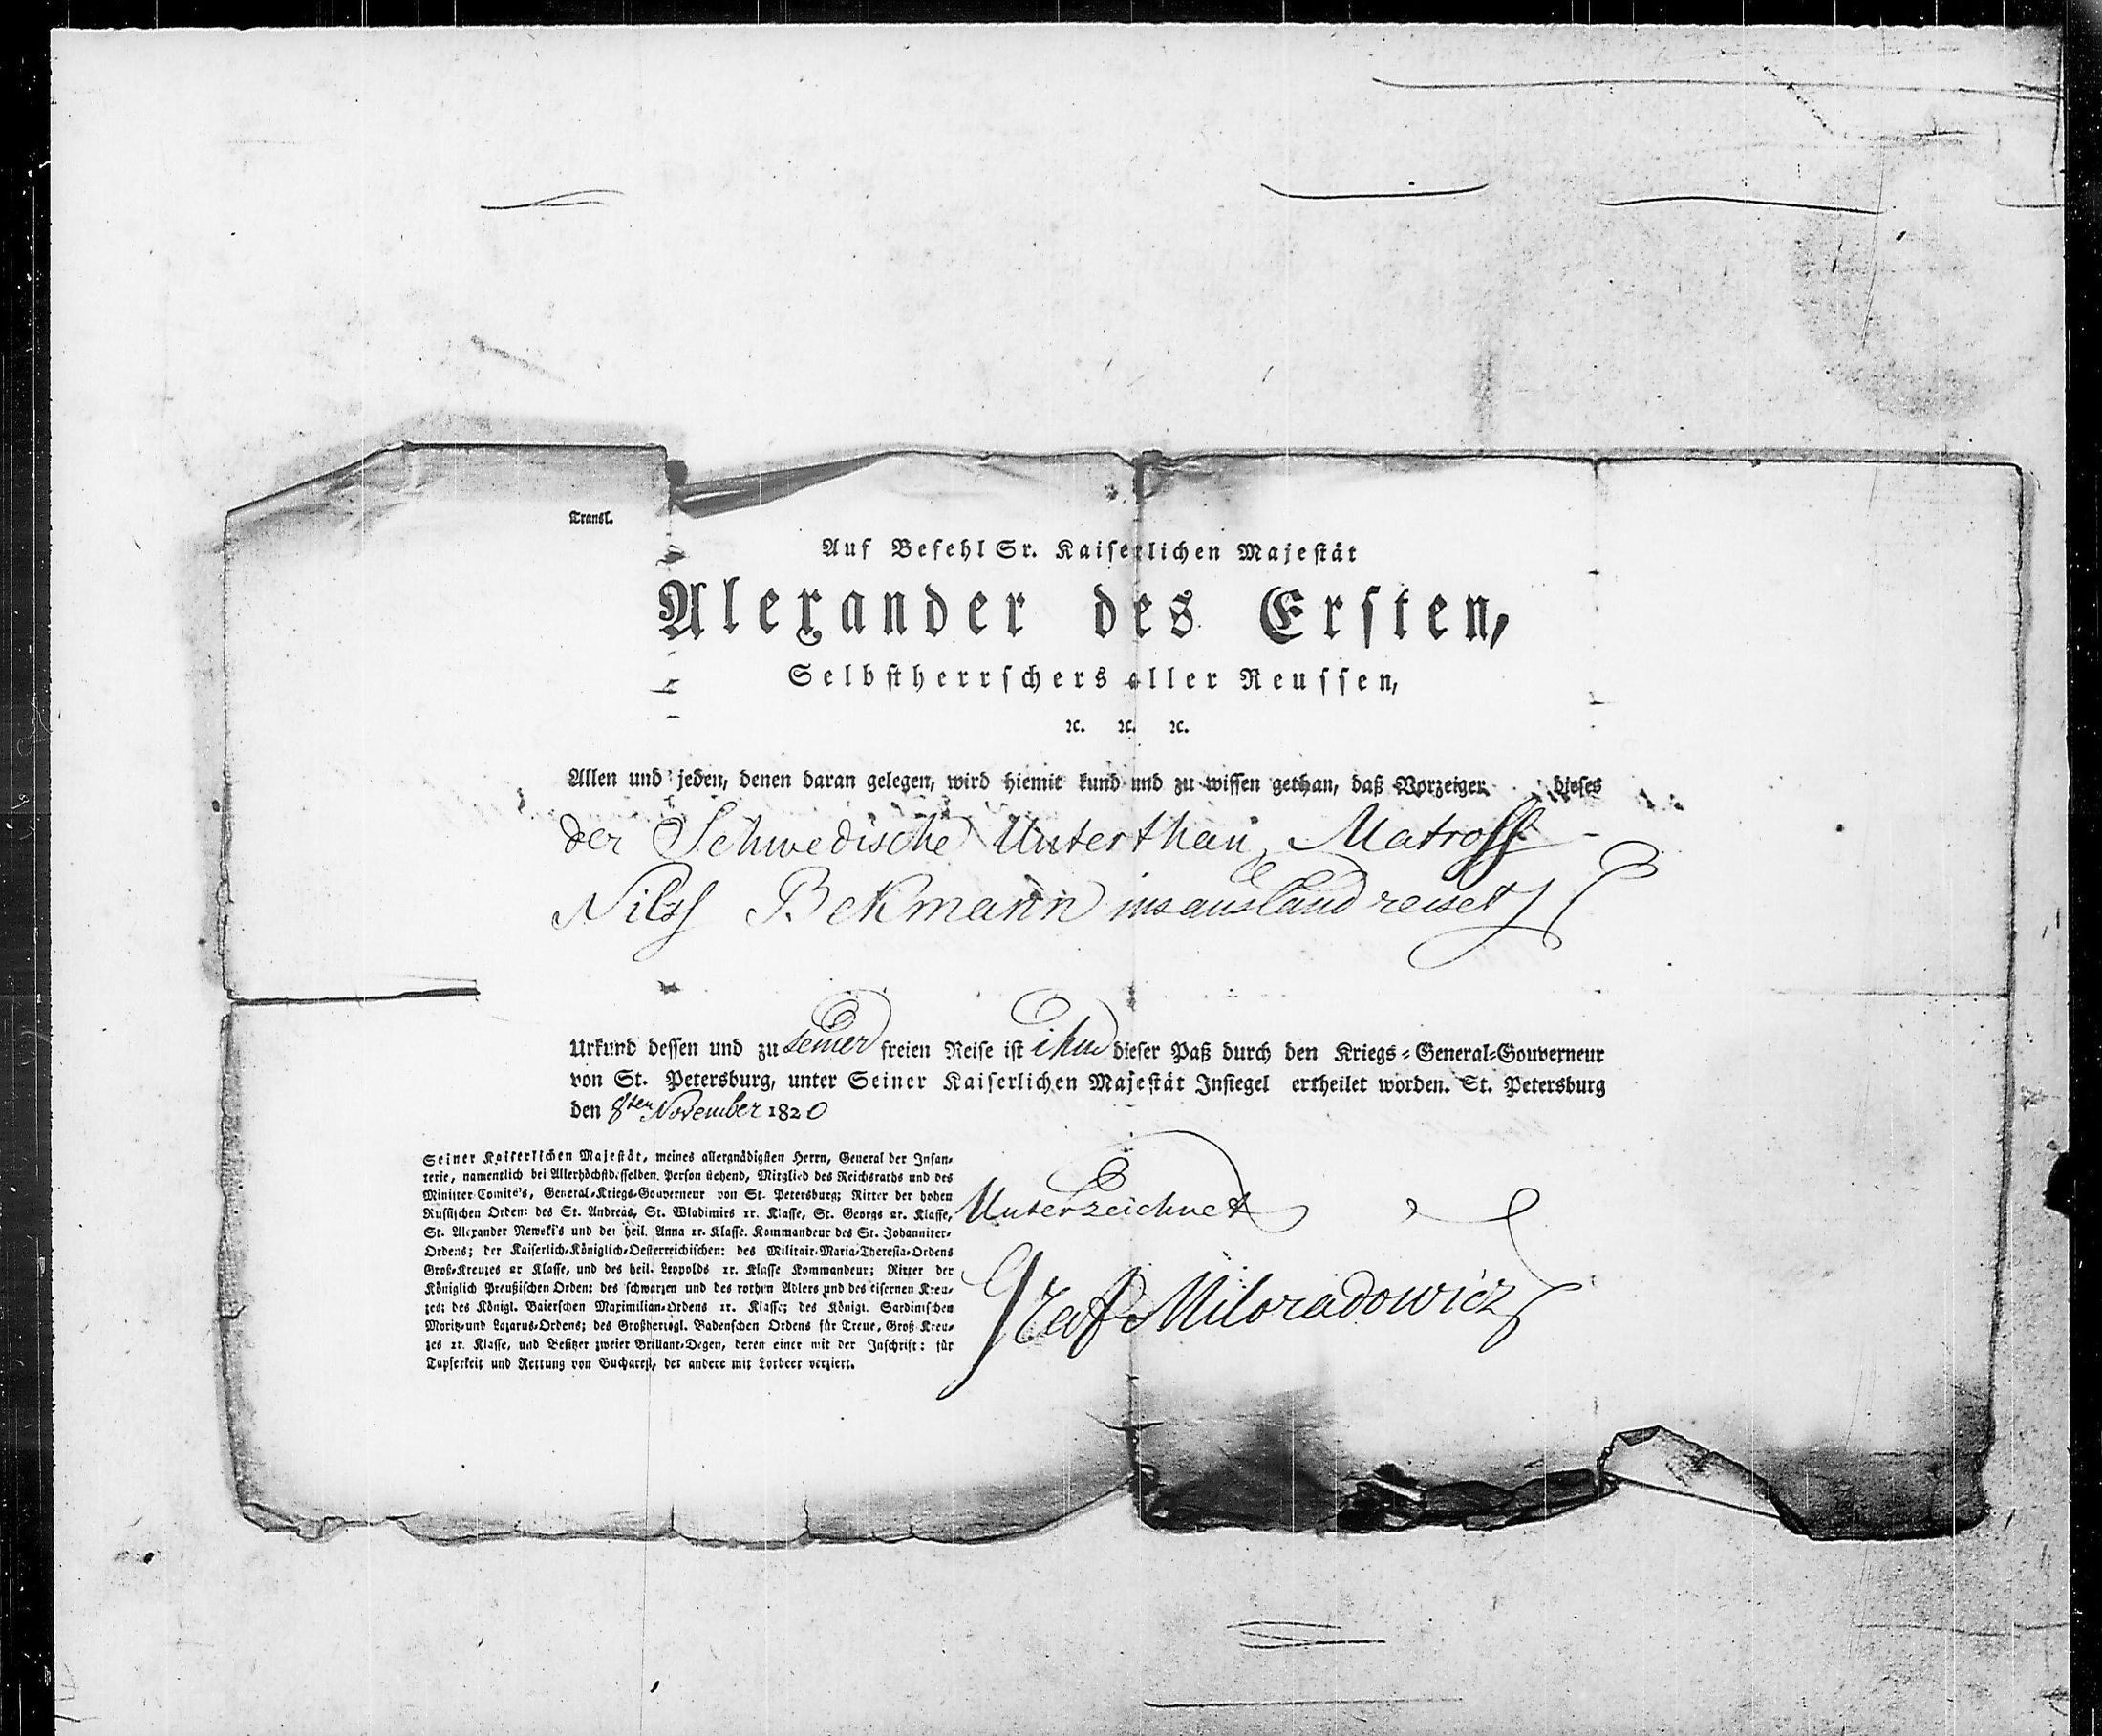 Transl.
Auf Befehl Sr. Kaiserlichen Majestät
Alexander des Ersten,
Selbstherrschers aller Reussen,
ꝛc. ꝛc. ꝛc.
Allen und jeden, denen daran gelegen, wird hiemit kund und zu wissen gethan, daß Vorzeiger dieses
der Schwedische Unterthan, Matross
Nilss Bekmann ins ausland reiset
Urkund dessen und zu seiner freien Reise ist ihm dieser Paß durch den Kriegs-General-Gouverneur
von St. Petersburg, unter Seiner Kaiserlichen Majestät Insiegel ertheilet worden. St. Petersburg
den 8ten November 1820
Seiner Kaiserlichen Majestät, meines allergnädigsten Herrn, General der Infan-
terie, namentlich bei Allerhöchstdesselben Person stehend, Mitglied des Reichsraths und des
Minister-Comité's, General-Kriegs-Gouverneur von St. Petersburg; Ritter der hohen
Russischen Orden: des St. Andreas, St. Wladimirs 1r. Klasse, St. Georgs 2r. Klasse,
St. Alexander Newski's und der heil. Anna 1r. Klasse. Kommandeur des St. Johanniter-
Ordens; der Kaiserlich-Königlich-Oesterreichischen: des Militair-Maria-Theresia-Ordens
Groß-Kreuzes 2r Klasse, und des heil. Leopolds 1r. Klasse Kommandeur; Ritter der
Königlich Preußischen Orden: des schwarzen und des rothen Adlers und des eisernen Kreu-
zes; des Königl. Baierschen Maximilian-Ordens 1r. Klasse; des Königl. Sardinischen
Moritz-und Lazarus-Ordens; des Großherzogl. Badenschen Ordens für Treue, Groß-Kreu-
zes 1r. Klasse, und Besitzer zweier Brillant-Degen, deren einer mit der Inschrift: für
Tapferkeit und Rettung von Bucharest, der andere mit Lorbeer verziert.
Unterzeichnet
Graf Miloradowicz